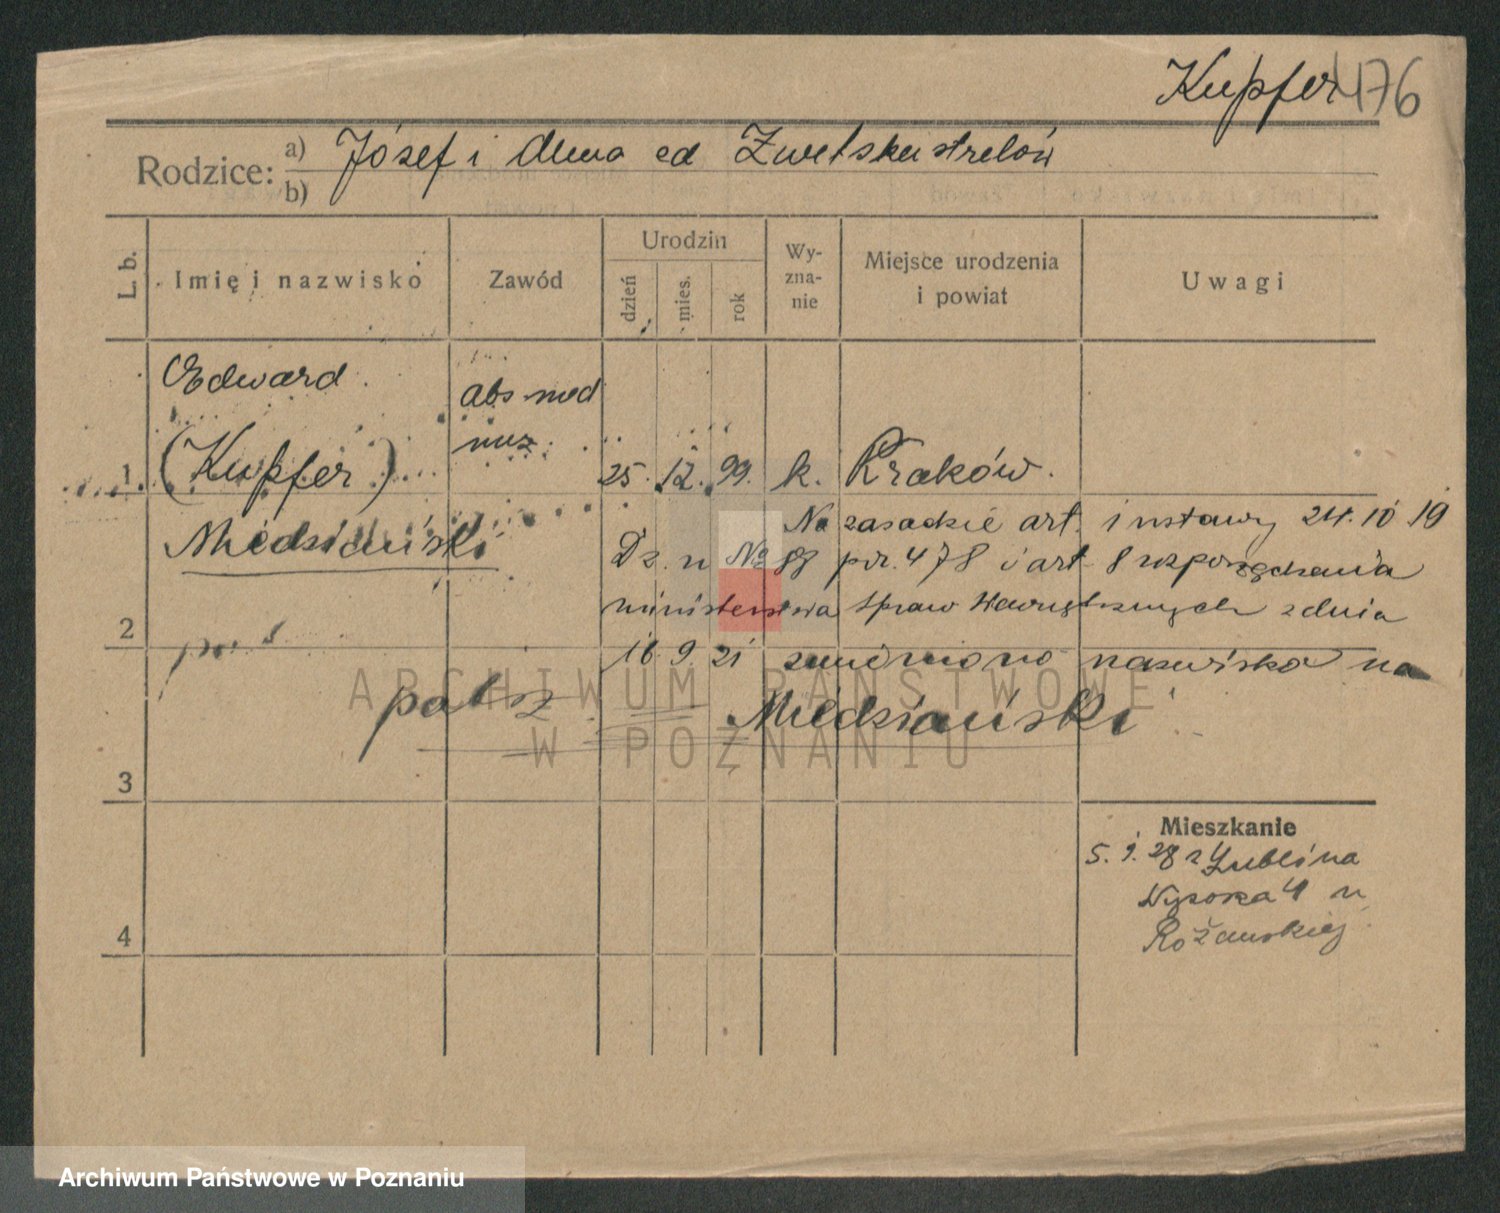 Kupfer 176
Rodzice: a) Józef i Anna
b)
L. b.
Imię i nazwisko
Zawód
Urodzin
dzień
mies.
rok
Wy-
zna-
nie
Miejsce urodzenia
i powiat
Uwagi
Edward
abs med
muz.
1 (Kupfer) 25. 12. 99. k. Kraków.
Miedziański
Na zasadzie art. 1 ustawy 24.10 19
Dz. u № 88 poz. 478 i art 8 rozporządzenia
ministerstwa Spraw Wewnętrznych z dnia
2
16 9 21 zmieniono nazwisko na
patrz Miedziański
3
Mieszkanie
5. 9. 28 z Lublina
Wysoka 4 u
Różańskiej
4
ARCHIWUM PAŃSTWOWE
W POZNANIU
Archiwum Państwowe w Poznaniu